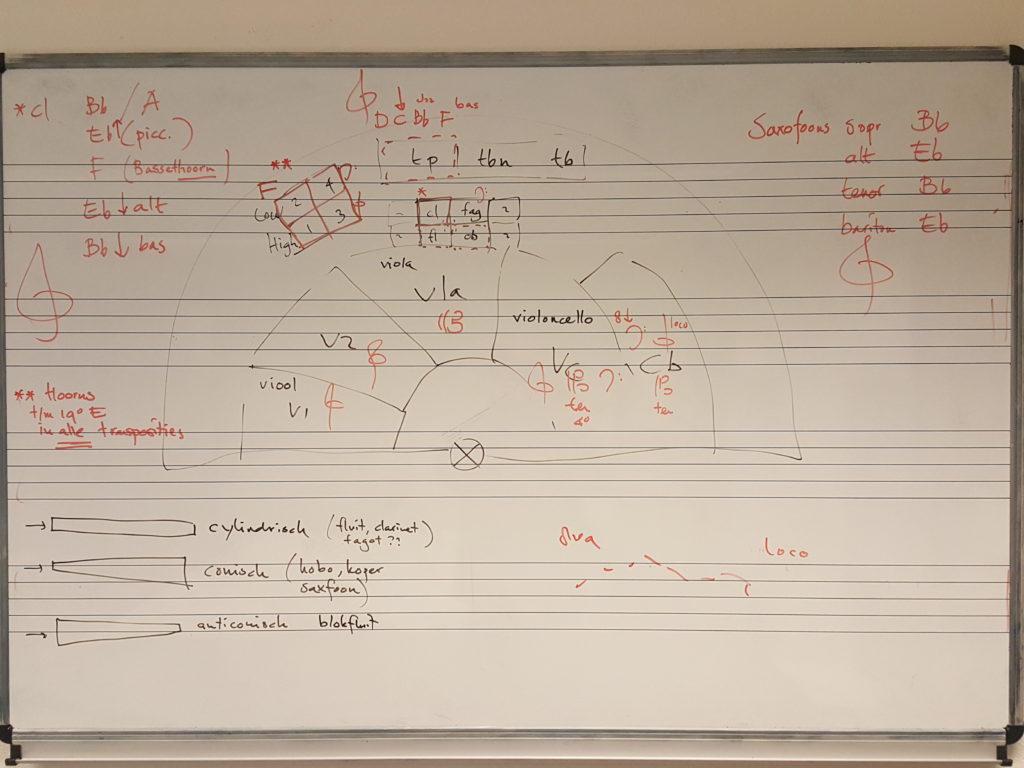 * cl
Bb / A
Eb (picc.)
F (Bassethoorn)
Eb ↓ alt
Bb ↓ bas
D C Bb F bas
tp tbn tb
**
F
2 4
Low
1 3
High
*
cl fag 2
2 fl ob 2
Saxofoons sopr Bb
alt Eb
tenor Bb
bariton Eb
viola
Vla
violoncello
8↓
loco
V2
Vc Cb
viool
V1
ten
ten
** Hoorns
t/m 19e E
in alle transposities
→ cylindrisch (fluit, clarinet
fagot ??)
→ conisch (hobo, koper
saxfoon)
→ anticonisch blokfluit
8va
loco